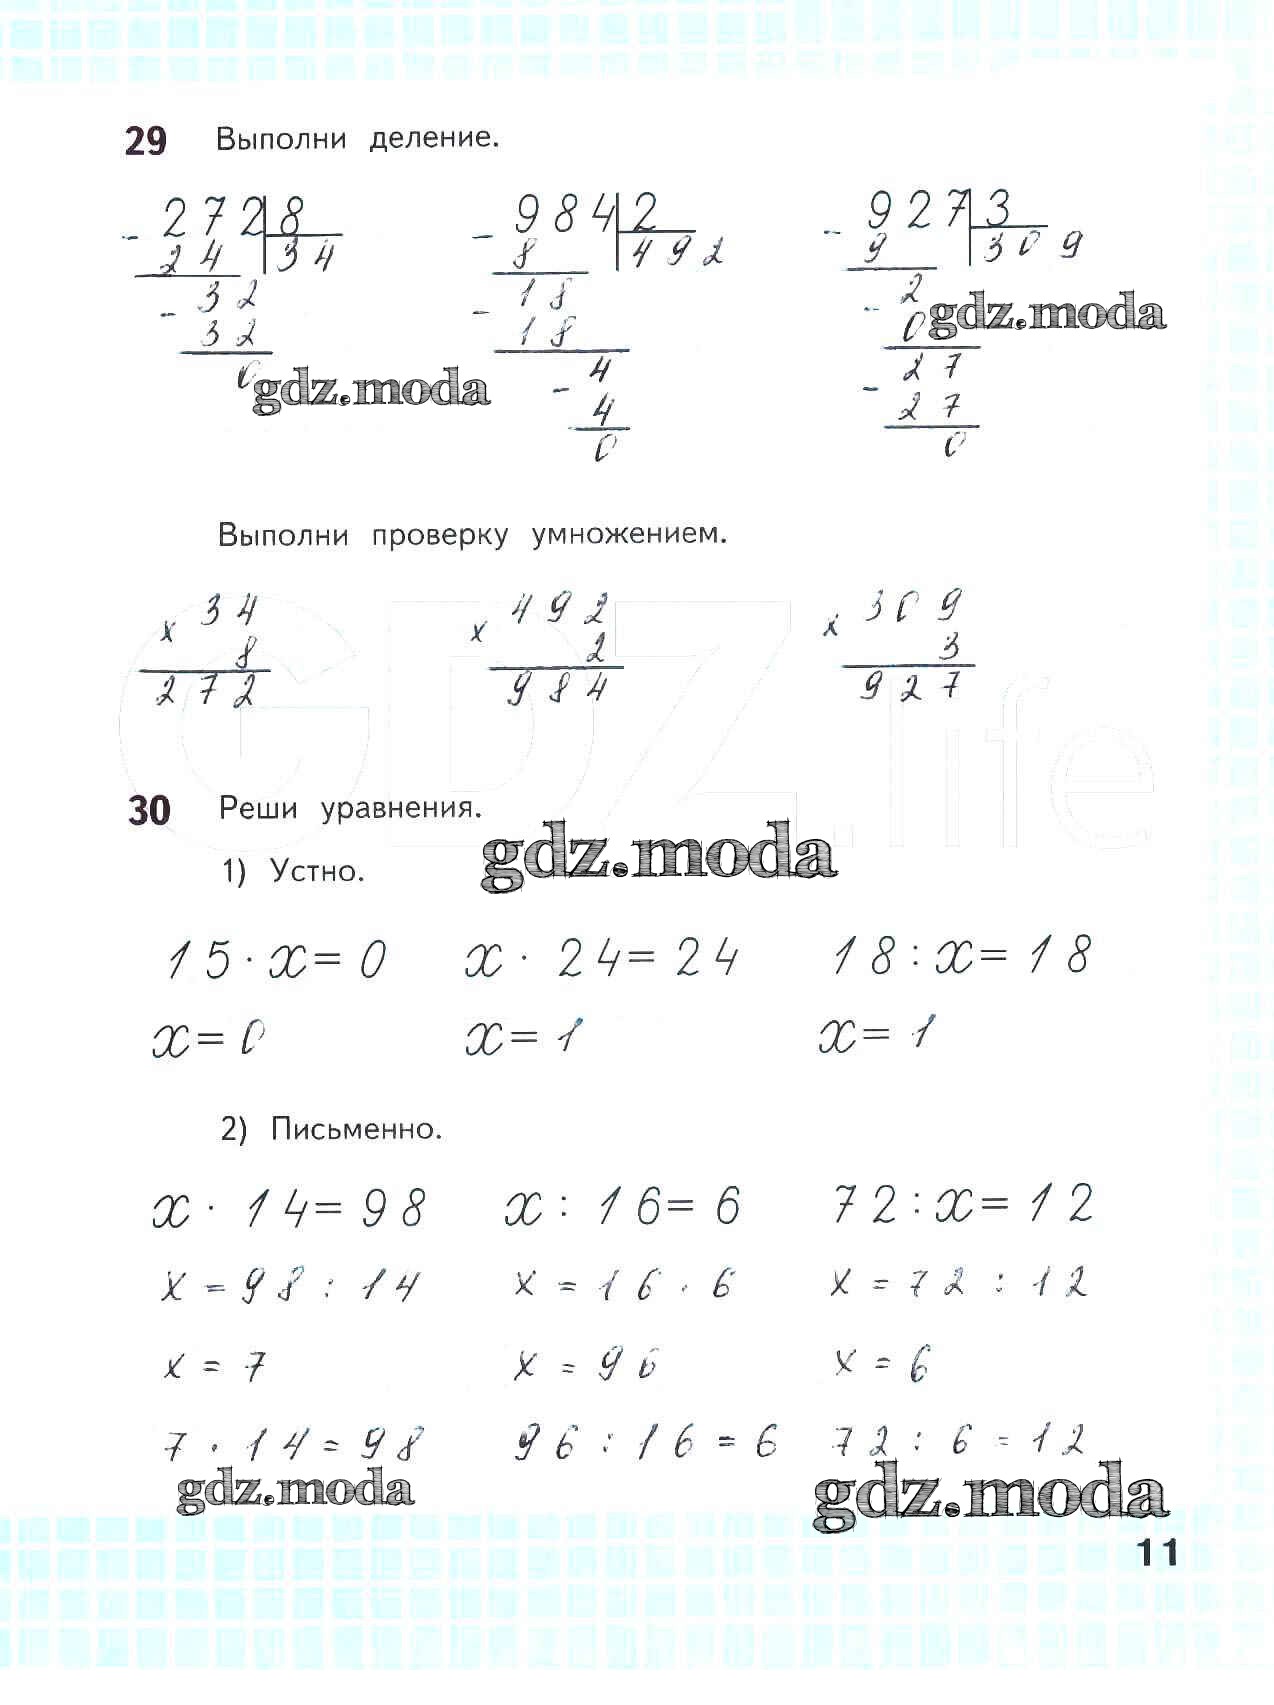 29 Выполни деление.
- 272|8 - 984|2 - 927|3
24 |34 8 |492 9 |309
- 32 - 18 - 2
32 18 0 gdz.moda
0 gdz.moda - 4 - 27
4 27
0 0
Выполни проверку умножением.
x 34 x 492 x 309
8 2 3
272 984 927
GDZ.life
30 Реши уравнения.
gdz.moda
1) Устно.
15 · x = 0 x · 24 = 24 18 : x = 18
x = 0 x = 1 x = 1
2) Письменно.
x · 14 = 98 x : 16 = 6 72 : x = 12
x = 98 : 14 x = 16 · 6 x = 72 : 12
x = 7 x = 96 x = 6
7 · 14 = 98 96 : 16 = 6 72 : 6 = 12
gdz.moda gdz.moda
11